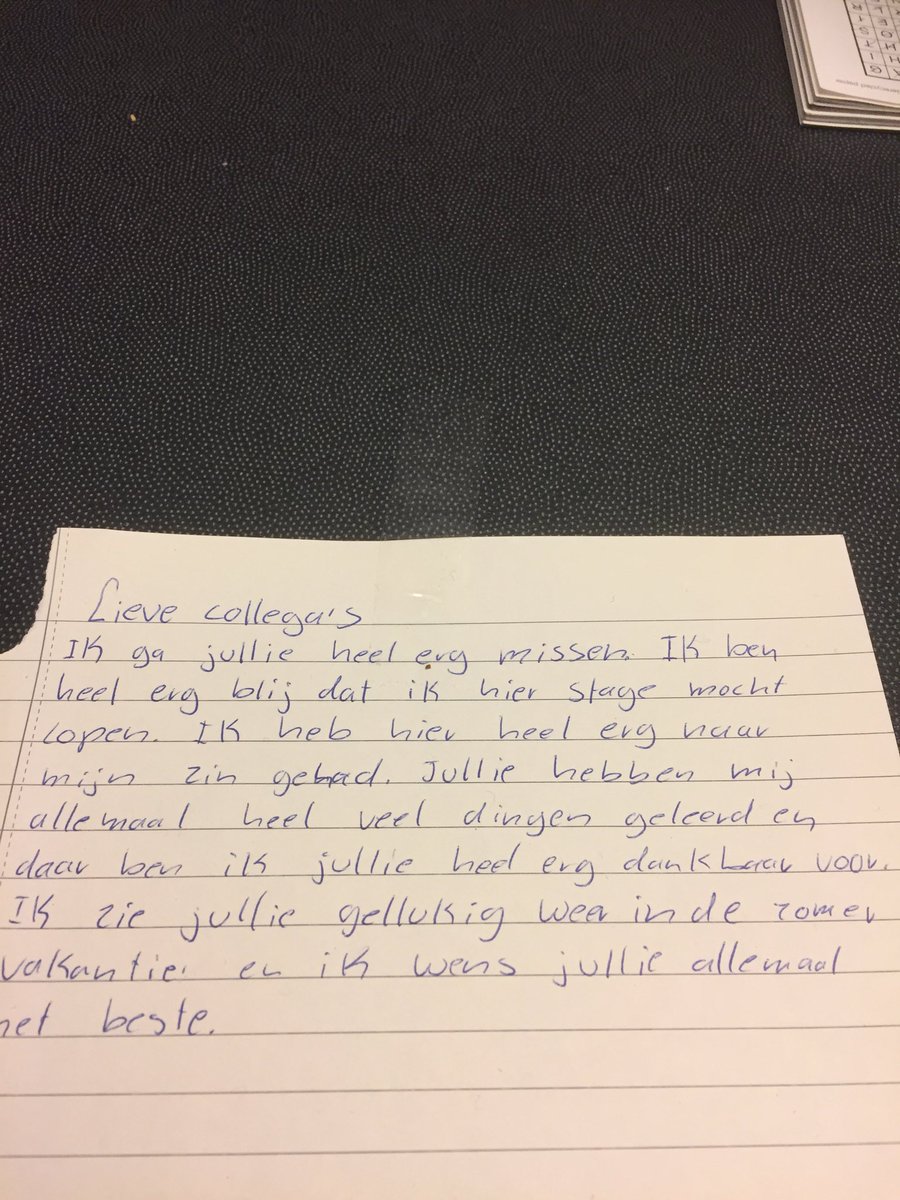 Lieve collega's
Ik ga jullie heel erg missen. Ik ben
heel erg blij dat ik hier stage mocht
lopen. Ik heb hier heel erg naar
mijn zin gehad. Jullie hebben mij
allemaal heel veel dingen geleerd en
daar ben ik jullie heel erg dankbaar voor.
Ik zie jullie gellukig weer in de zomer
vakantie. en ik wens jullie allemaal
het beste.